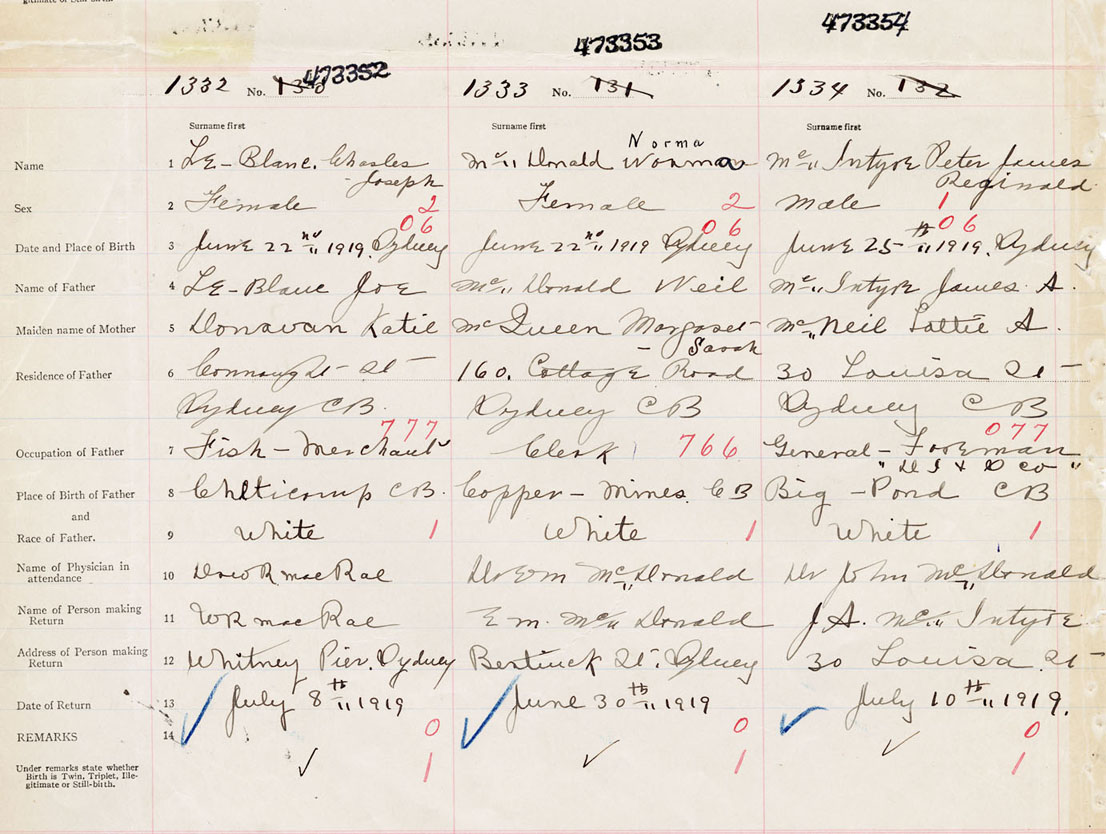 gitimate or Still-birth.
473353
473354
1332 No. 130 473352
1333 No. 131
1334 No. 132
Surname first Surname first Surname first
Name 1 LE-Blanc. Charles Joseph
Mc Donald Norman Norma
Mc Intyre Peter James Reginald
Sex 2 Female 2 Female 2 Male 1
06 06 06
Date and Place of Birth 3 June 22nd 1919. Sydney
June 22nd 1919 Sydney
June 25th 1919. Sydney
Name of Father 4 LE-Blanc Joe
Mc Donald Neil
Mc Intyre James A.
Maiden name of Mother 5 Donavan Katie
Mc Queen Margaret - Sarah
Mc Neil Lottie A.
Residence of Father 6 Connaught St
160. Cottage Road
30 Louisa St
Sydney CB. Sydney CB Sydney CB
777 766 077
Occupation of Father 7 Fish-Merchant
Clerk
General-Foreman
" D I & S Co "
Place of Birth of Father 8 Chticamp CB.
Copper-Mines. CB
Big-Pond CB
and
Race of Father. 9 White 1 White 1 White 1
Name of Physician in attendance 10 MacRae
Dr Em McDonald
Dr John McDonald
Name of Person making Return 11 WR MacRae
E m. Mc Donald
J A. Mc Intyre
Address of Person making Return 12 Whitney Pier. Sydney
Bentinck St. Sydney
30 Louisa St
Date of Return 13 July 8th 1919
June 30th 1919
July 10th 1919.
REMARKS 14 0 0 0
Under remarks state whether
Birth is Twin, Triplet, Ille-
gitimate or Still-birth.
1 1 1